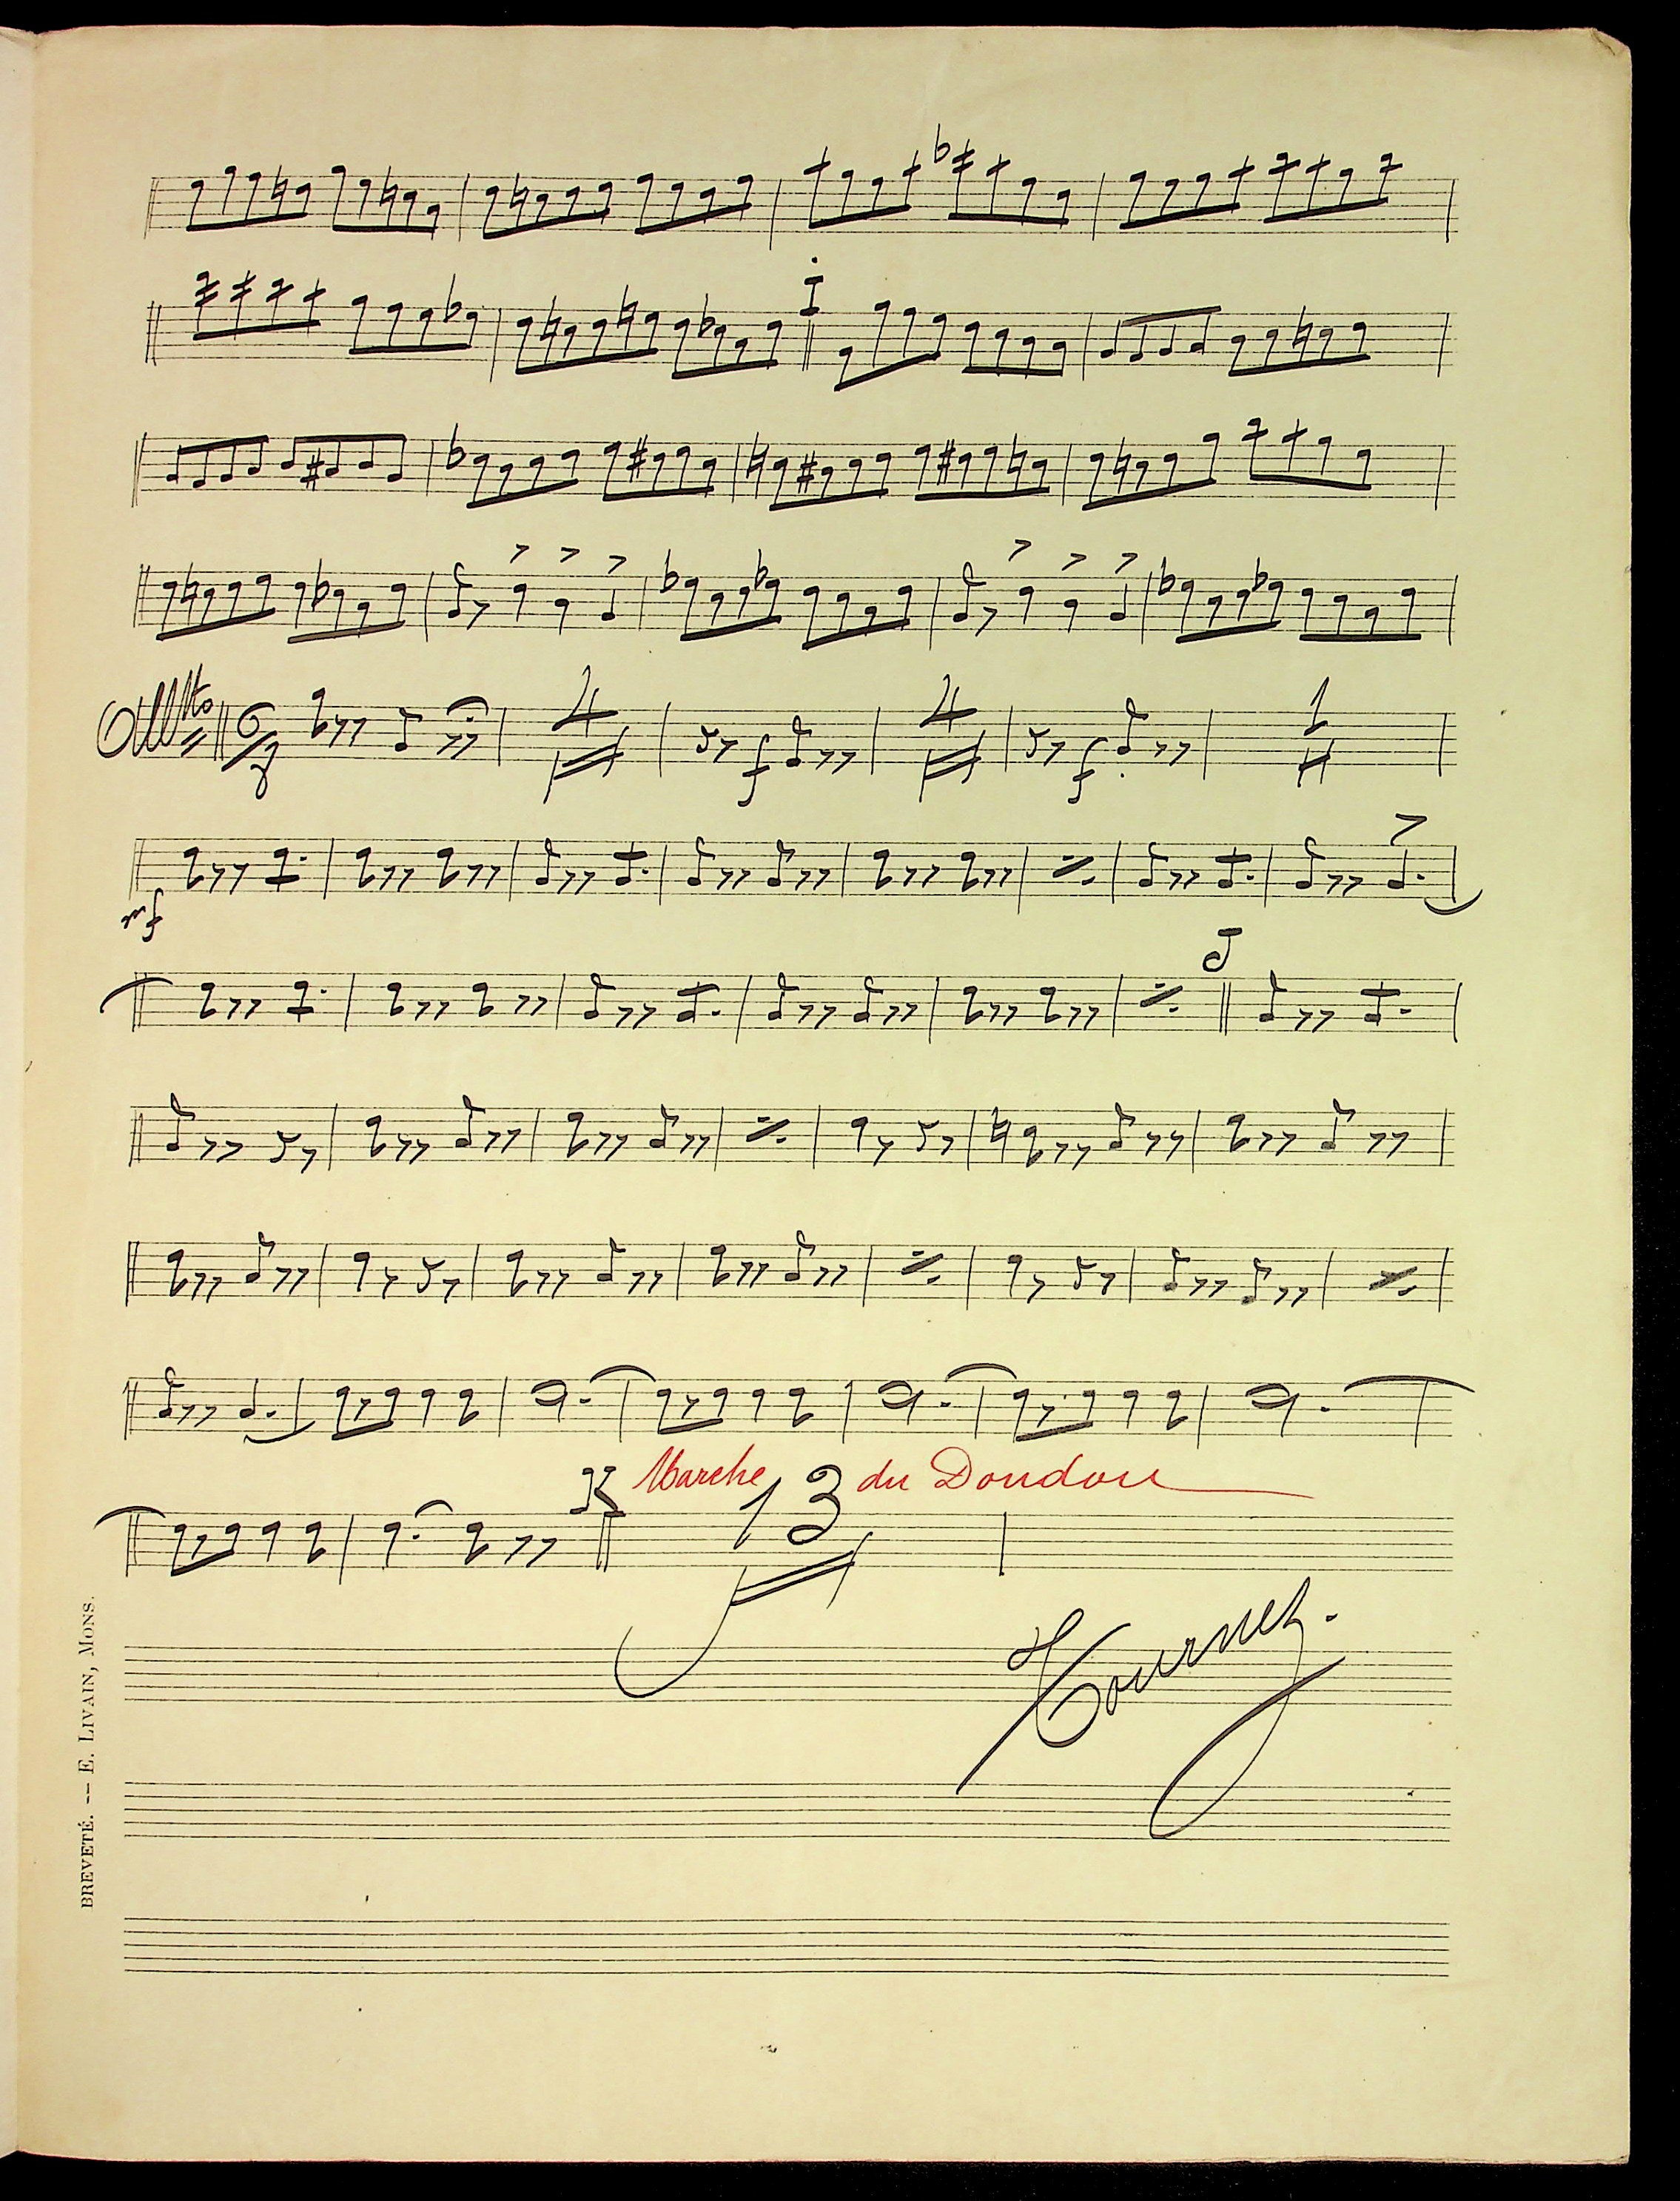 I
Alltto 6/8
4
f
4
f
1
mf
J
K Marche 13 du Doudou
Tournez.
BREVETÉ. -- E. LIVAIN, MONS.